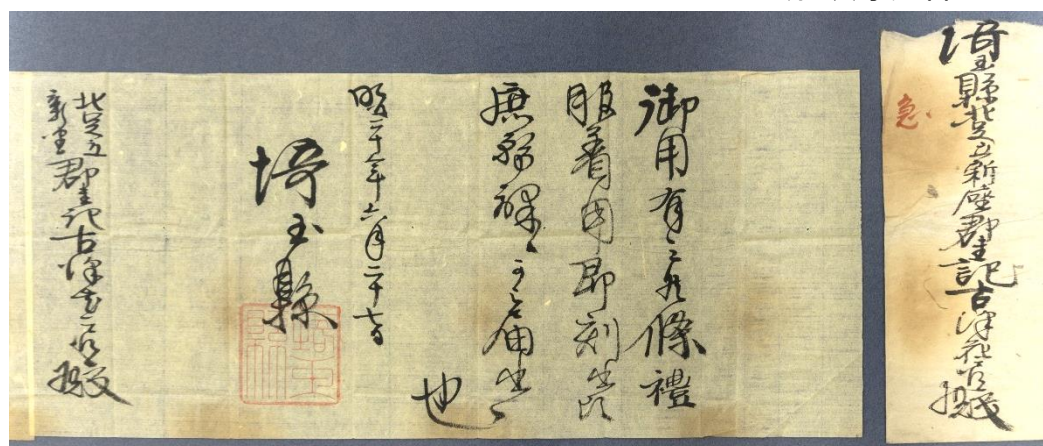 埼玉縣北足立新座郡書記古澤花吉殿
急
御用有之候條禮
服着用即刻出頭
庶務課ヘ可届出
也
明治二十二年六月二十七日
埼玉縣
北足立
新座郡書記古澤花吉殿